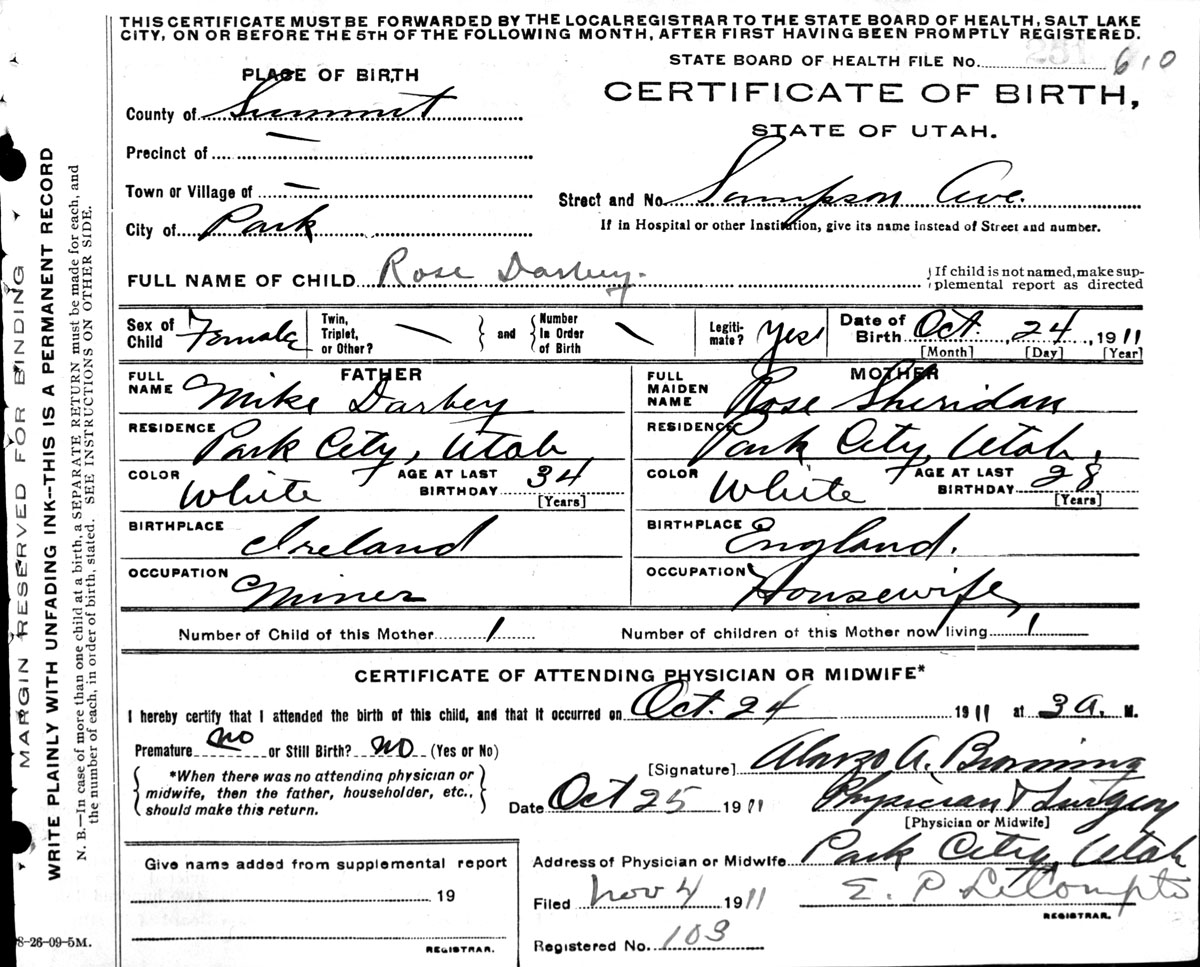 THIS CERTIFICATE MUST BE FORWARDED BY THE LOCAL REGISTRAR TO THE STATE BOARD OF HEALTH, SALT LAKE
CITY, ON OR BEFORE THE 5TH OF THE FOLLOWING MONTH, AFTER FIRST HAVING BEEN PROMPTLY REGISTERED.
251
STATE BOARD OF HEALTH FILE No. 610
PLACE OF BIRTH
CERTIFICATE OF BIRTH,
STATE OF UTAH.
County of Summit
Precinct of —
Town or Village of —
Street and No. Sampson Ave.
City of Park
If in Hospital or other Institution, give its name instead of Street and number.
FULL NAME OF CHILD Rose Darbey. {If child is not named, make sup-
plemental report as directed
Sex of Child Female Twin, Triplet, or Other? — } and { Number In Order of Birth \ Legiti-mate? Yes Date of Birth Oct. 24, 1911
[Month] [Day] [Year]
FATHER MOTHER
FULL NAME Mike Darbey FULL MAIDEN NAME Rose Sheridan
RESIDENCE Park City, Utah RESIDENCE Park City, Utah.
COLOR White AGE AT LAST BIRTHDAY 34 [Years] COLOR White AGE AT LAST BIRTHDAY 28 [Years]
BIRTHPLACE Ireland BIRTHPLACE England.
OCCUPATION Miner OCCUPATION Housewife
Number of Child of this Mother 1 Number of children of this Mother now living 1
CERTIFICATE OF ATTENDING PHYSICIAN OR MIDWIFE*
I hereby certify that I attended the birth of this child, and that it occurred on Oct. 24 1911 at 3 a. M.
Premature no or Still Birth? no (Yes or No)
*When there was no attending physician or
midwife, then the father, householder, etc.,
should make this return.
[Signature] Alonzo A. Browning
Date Oct 25 1911 Physician & Surgeon
[Physician or Midwife]
Address of Physician or Midwife Park City, Utah
Give name added from supplemental report
19
REGISTRAR.
Filed Nov 4 1911 E. P. LeCompte
REGISTRAR.
Registered No. 103
8-26-09-5M.
MARGIN RESERVED FOR BINDING
WRITE PLAINLY WITH UNFADING INK--THIS IS A PERMANENT RECORD
N. B.—In case of more than one child at a birth, a SEPARATE RETURN must be made for each, and
the number of each, in order of birth, stated. SEE INSTRUCTIONS ON OTHER SIDE.